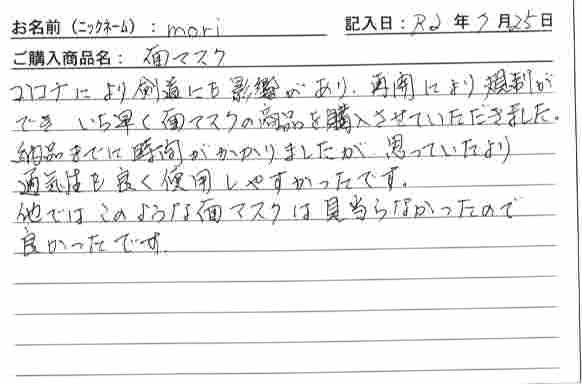 お名前（ニックネーム）：mori 記入日：R2年7月25日
ご購入商品名：面マスク
コロナにより剣道にも影響があり、再開により規制が
でき いち早く面マスクの商品を購入させていただきました。
納品までに時間がかかりましたが、思っていたより
通気性も良く使用しやすかったです。
他ではこのような面マスクは見当らなかったので
良かったです。